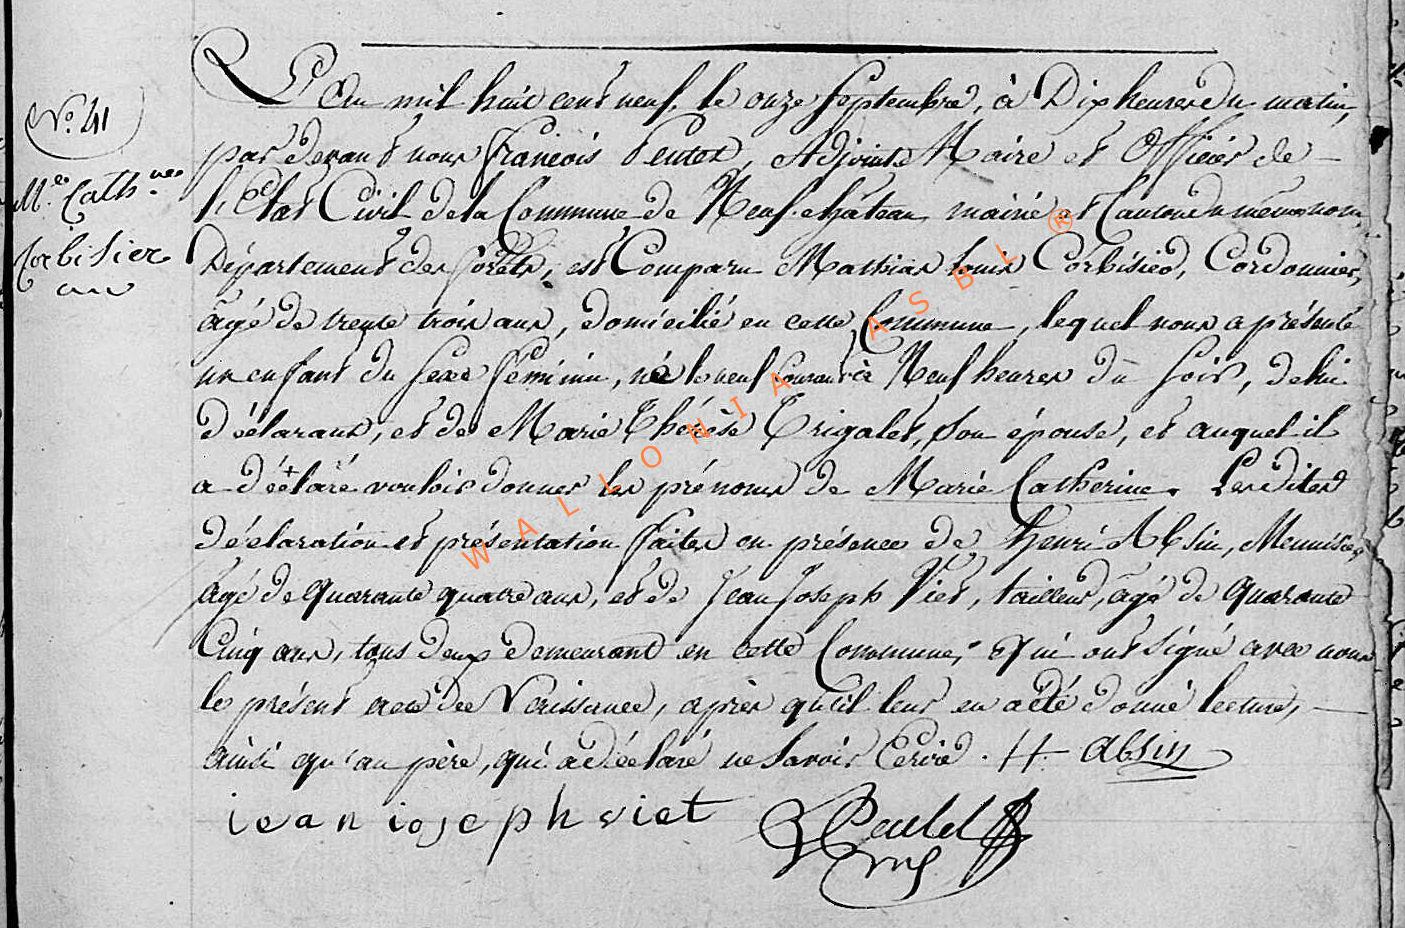 N.° 41
M.ie Cath.nee
Corbisier
L'An mil huit cent neuf, le onze septembre, à Dix heures du matin,
par devant nous françois Pentel, Adjoint Maire et Officier de
l'Etat Civil de la Commune de Neufchâteau, mairie et Canton du même nom,
Département des forêts, est Comparu Mathias Louis Corbisier, Cordonnier,
âgé de trente trois ans, domicilié en cette Commune, lequel nous a présenté
un enfant du sexe féminin, né le neuf Courant à Neuf heures du soir, de lui
déclarant, et de Marie Thérèse Trigalet, son épouse, et auquel il
a déclaré vouloir donner les prénoms de Marie Catherine. Lesdites
déclaration et présentation faites en présence de henri Absin, Menuisier,
âgé de quarante quatre ans, et de Jean Joseph Viet, tailleur, âgé de quarante
Cinq ans, tous deux demeurant en cette Commune, qui ont signé avec nous
le présent acte de Naissance, après qu'il leur en a été donné lecture,
ainsi qu'au père, qui a déclaré ne savoir Ecrire. H. absin
iean ioseph viet
WALLONIA ASBL ®